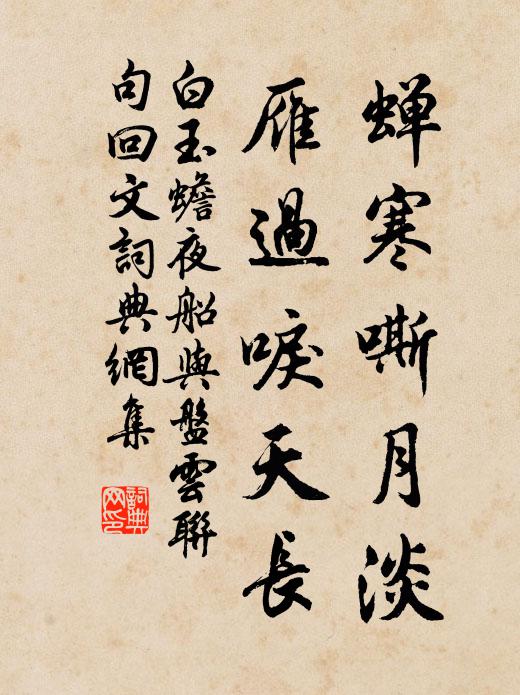 蝉寒嘶月淡
雁過唳天長
白玉蟾夜船與盤雲聯
句回文詞典網集
詞典
网印